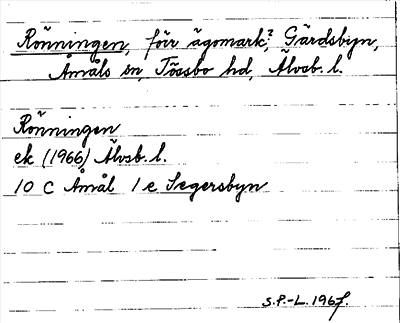 Rönningen, förr ägomark?, Gärdsbyn,
Åmåls sn, Tössbo hd, Älvsb. l.
Rönningen
ek (1966) Älvsb. l.
10 C Åmål 1 e Segersbyn
S.P.-L. 1967.